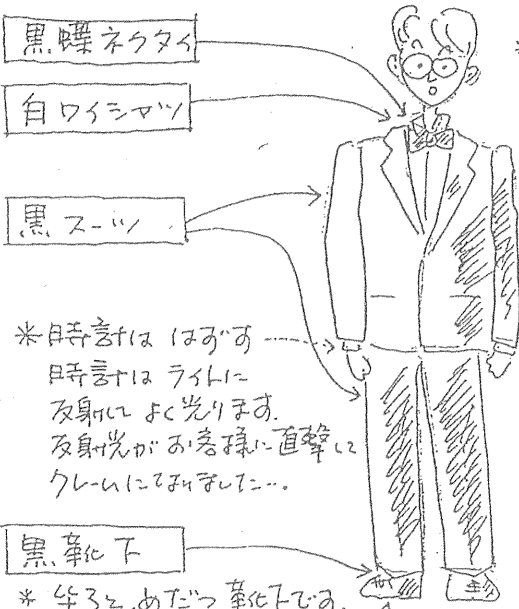 黒蝶ネクタイ
白ワイシャツ
黒スーツ
*時計は はずす
時計は ライトに
反射して よく光ります.
反射光が お客様に直撃して
クレームになりました….
黒靴下
* 坐ると、めだつ 靴下です.